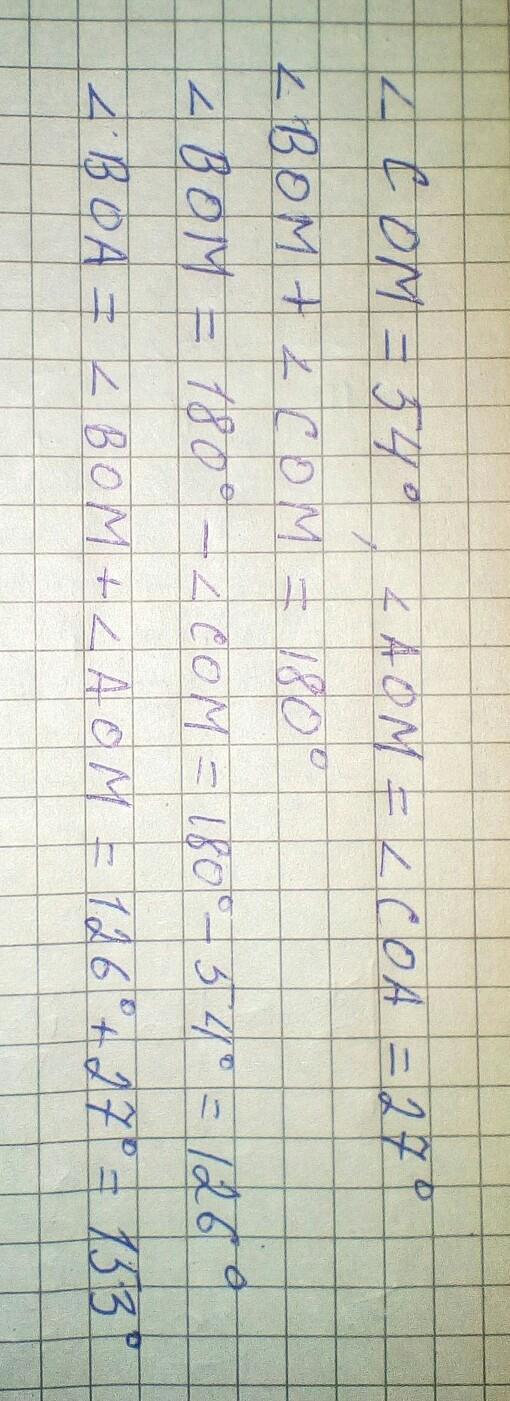 ∠COM = 54°, ∠AOM = ∠COA = 27°
∠BOM + ∠COM = 180°
∠BOM = 180° - ∠COM = 180° - 54° = 126°
∠BOA = ∠BOM + ∠AOM = 126° + 27° = 153°